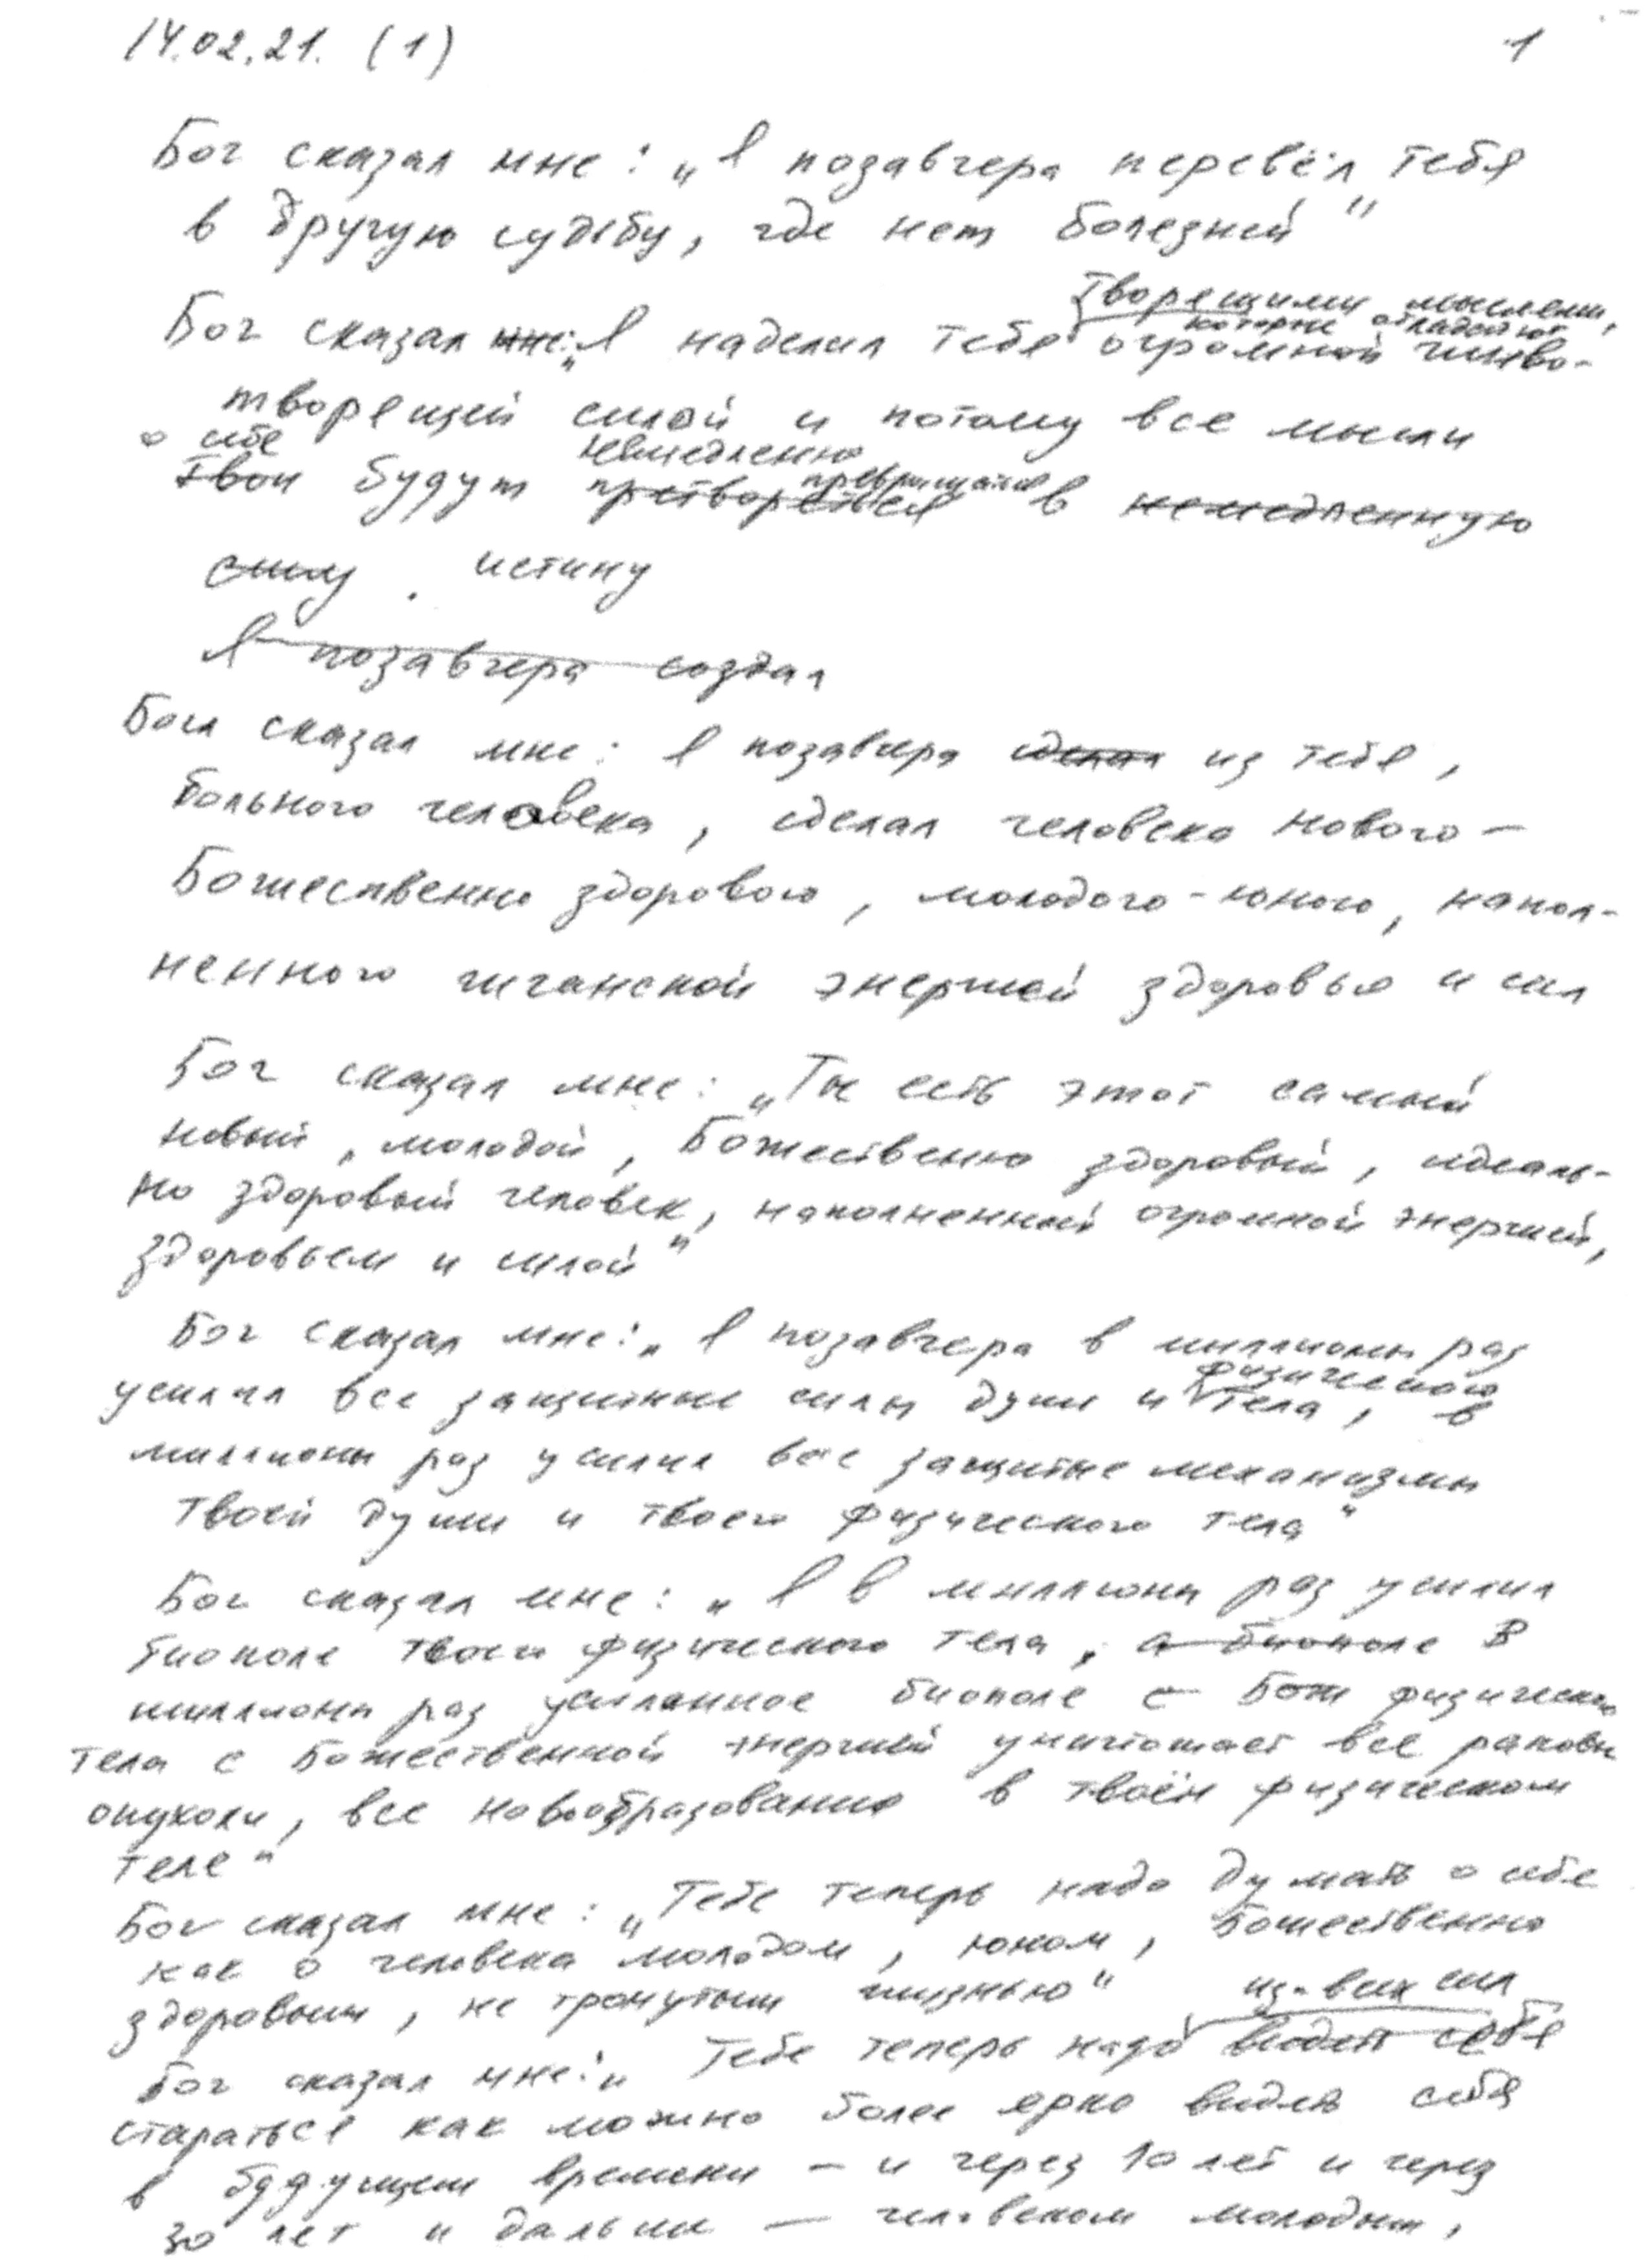 14.02.21. (1)
1
Бог сказал мне: „Я позавчера перевёл тебя
в другую судьбу, где нет болезней"
творящими мыслями,
которые обладают
Бог сказал мне: „Я наделил тебя огромной живо-
творящей силой и потому все мысли
о себе
немедленно
превращаться
твои будут претворяться в немедленную
силу. истину
Я позавчера создал
Бог сказал мне: Я позавчера сделал из тебя,
больного человека, сделал человека нового —
Божественно здорового, молодого-юного, напол-
ненного гигансной энергией здоровья и сил
Бог сказал мне: „Ты есть этот самый
новый, молодой, Божественно здоровый, идеаль-
но здоровый человек, наполненный огромной энергией,
здоровьем и силой"
Бог сказал мне: „Я позавчера в миллионы раз
физического
усилил все защитные силы души и тела, в
миллионы раз усилил все защитные механизмы
твоей души и твоего физического тела"
Бог сказал мне: „Я в миллионы раз усилил
биополе твоего физического тела, а биополе В
миллионы раз усиленное биополе с Бож физического
тела с Божественной энергией уничтожает все раковые
опухоли, все новообразования в твоём физическом
теле"
Бог сказал мне: „Тебе теперь надо думать о себе
как о человека молодом, юном, Божественно
здоровым, не тронутым жизнью"
изо всех сил
Бог сказал мне: „Тебе теперь надо видеть себя
стараться как можно более ярко видеть себя
в будущем времени — и через 10 лет и через
30 лет и дальше — человеком молодым,